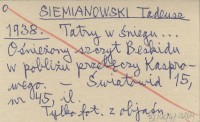 SIEMIANOWSKI Tadeusz
1938. Tatry w śniegu...
Ośnieżony szczyt Beskidu
w pobliżu przełęczy Kaspro-
wego. – Światowid 15,
nr 45, il.
Tylko fot. z objaśn.